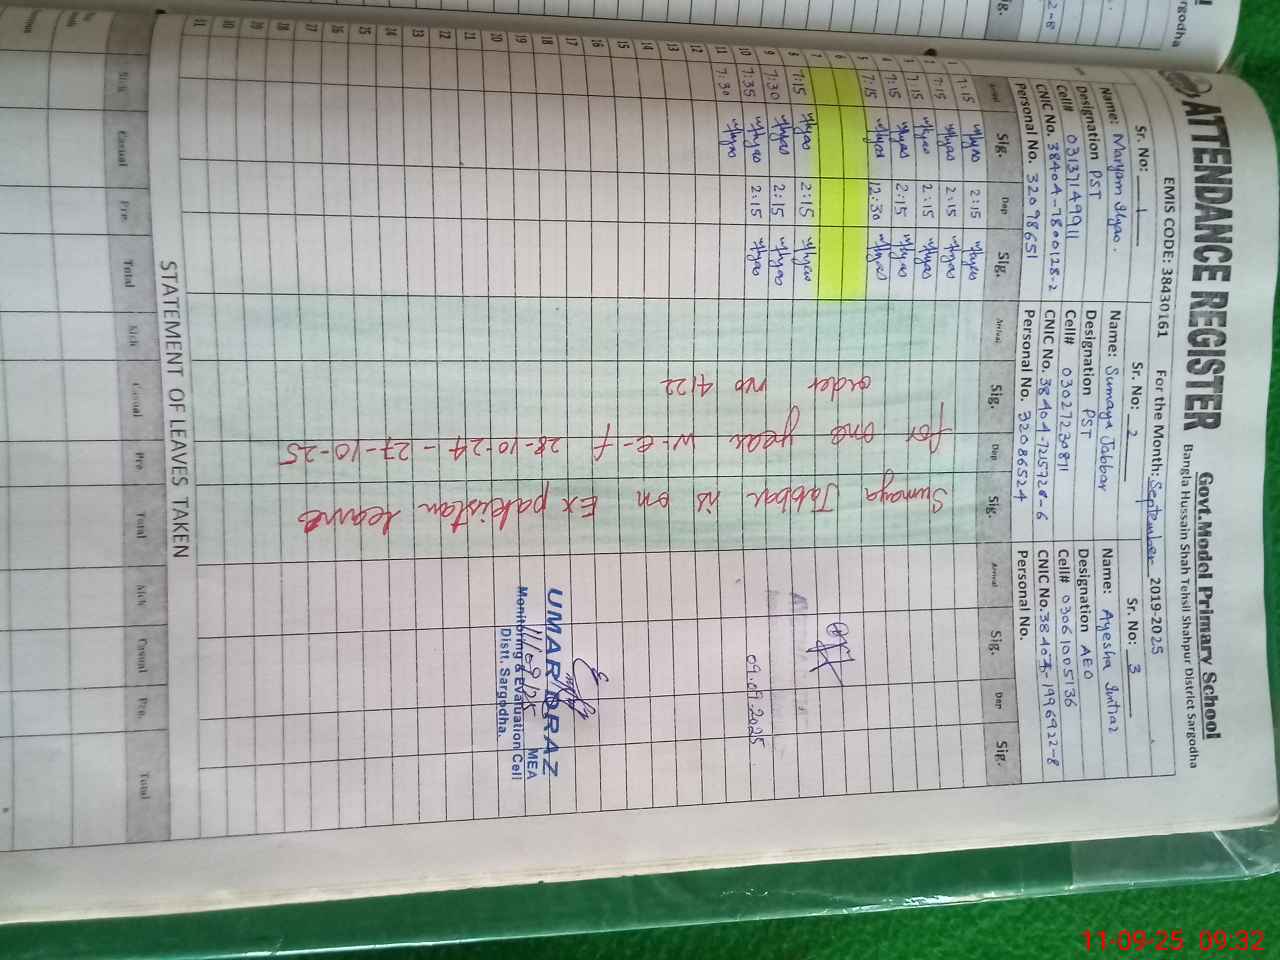 ATTENDANCE REGISTER
Govt.Model Primary School
Bangla Hussain Shah Tehsil Shahpur District Sargodha
EMIS CODE: 38430161 For the Month: September 2019-2025
Sr. No: 1
Name: Maryam Ilyas.
Designation PST
Cell# 03137149911
CNIC No. 38404-7800128-2
Personal No. 32098651
Sr. No: 2
Name: Sumaya Jabbar
Designation PST
Cell# 03027230871
CNIC No. 38404-7215728-6
Personal No. 32086524
Sr. No: 3
Name: Ayesha Imtiaz
Designation AEO
Cell# 03061005136
CNIC No. 38403-1996922-8
Personal No.
Arrival Sig. Dep Sig. Arrival Sig. Dep Sig. Arrival Sig. Dep Sig.
1 7:15 m/Ilyas 2:15 m/Ilyas
2 7:15 m/Ilyas 2:15 m/Ilyas
3 7:15 m/Ilyas 2:15 m/Ilyas
4 7:15 m/Ilyas 2:15 m/Ilyas
5 7:15 m/Ilyas 12:30 m/Ilyas
6
7
8 7:15 m/Ilyas 2:15 m/Ilyas
9 7:30 m/Ilyas 2:15 m/Ilyas
10 7:35 m/Ilyas 2:15 m/Ilyas
11 7:30 m/Ilyas
12
13
14
15
16
17
18
19
20
21
22
23
24
25
26
27
28
29
30
31
Sumaya Jabbar is on Ex pakistan leave
for one year w-e-f 28-10-24 - 27-10-25
order no 4122
09.09.2025
UMAR DRAZ
MEA
Monitoring & Evaluation Cell
Distt. Sargodha.
11/09/25
STATEMENT OF LEAVES TAKEN
Sick Casual Pre. Total Sick Casual Pre. Total Sick Casual Pre. Total
11-09-25 09:32